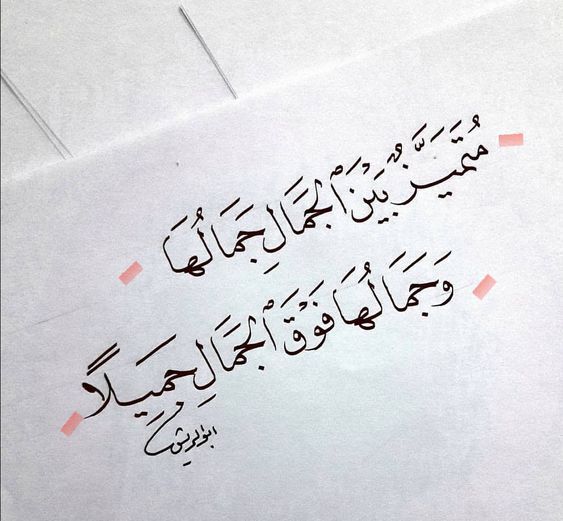 مُتَمَيِّزٌ بَيْنَ ٱلْجَمَالِ جَمَالُهَا
وَجَمَالُهَا فَوْقَ ٱلْجَمَالِ جَمِيلًا